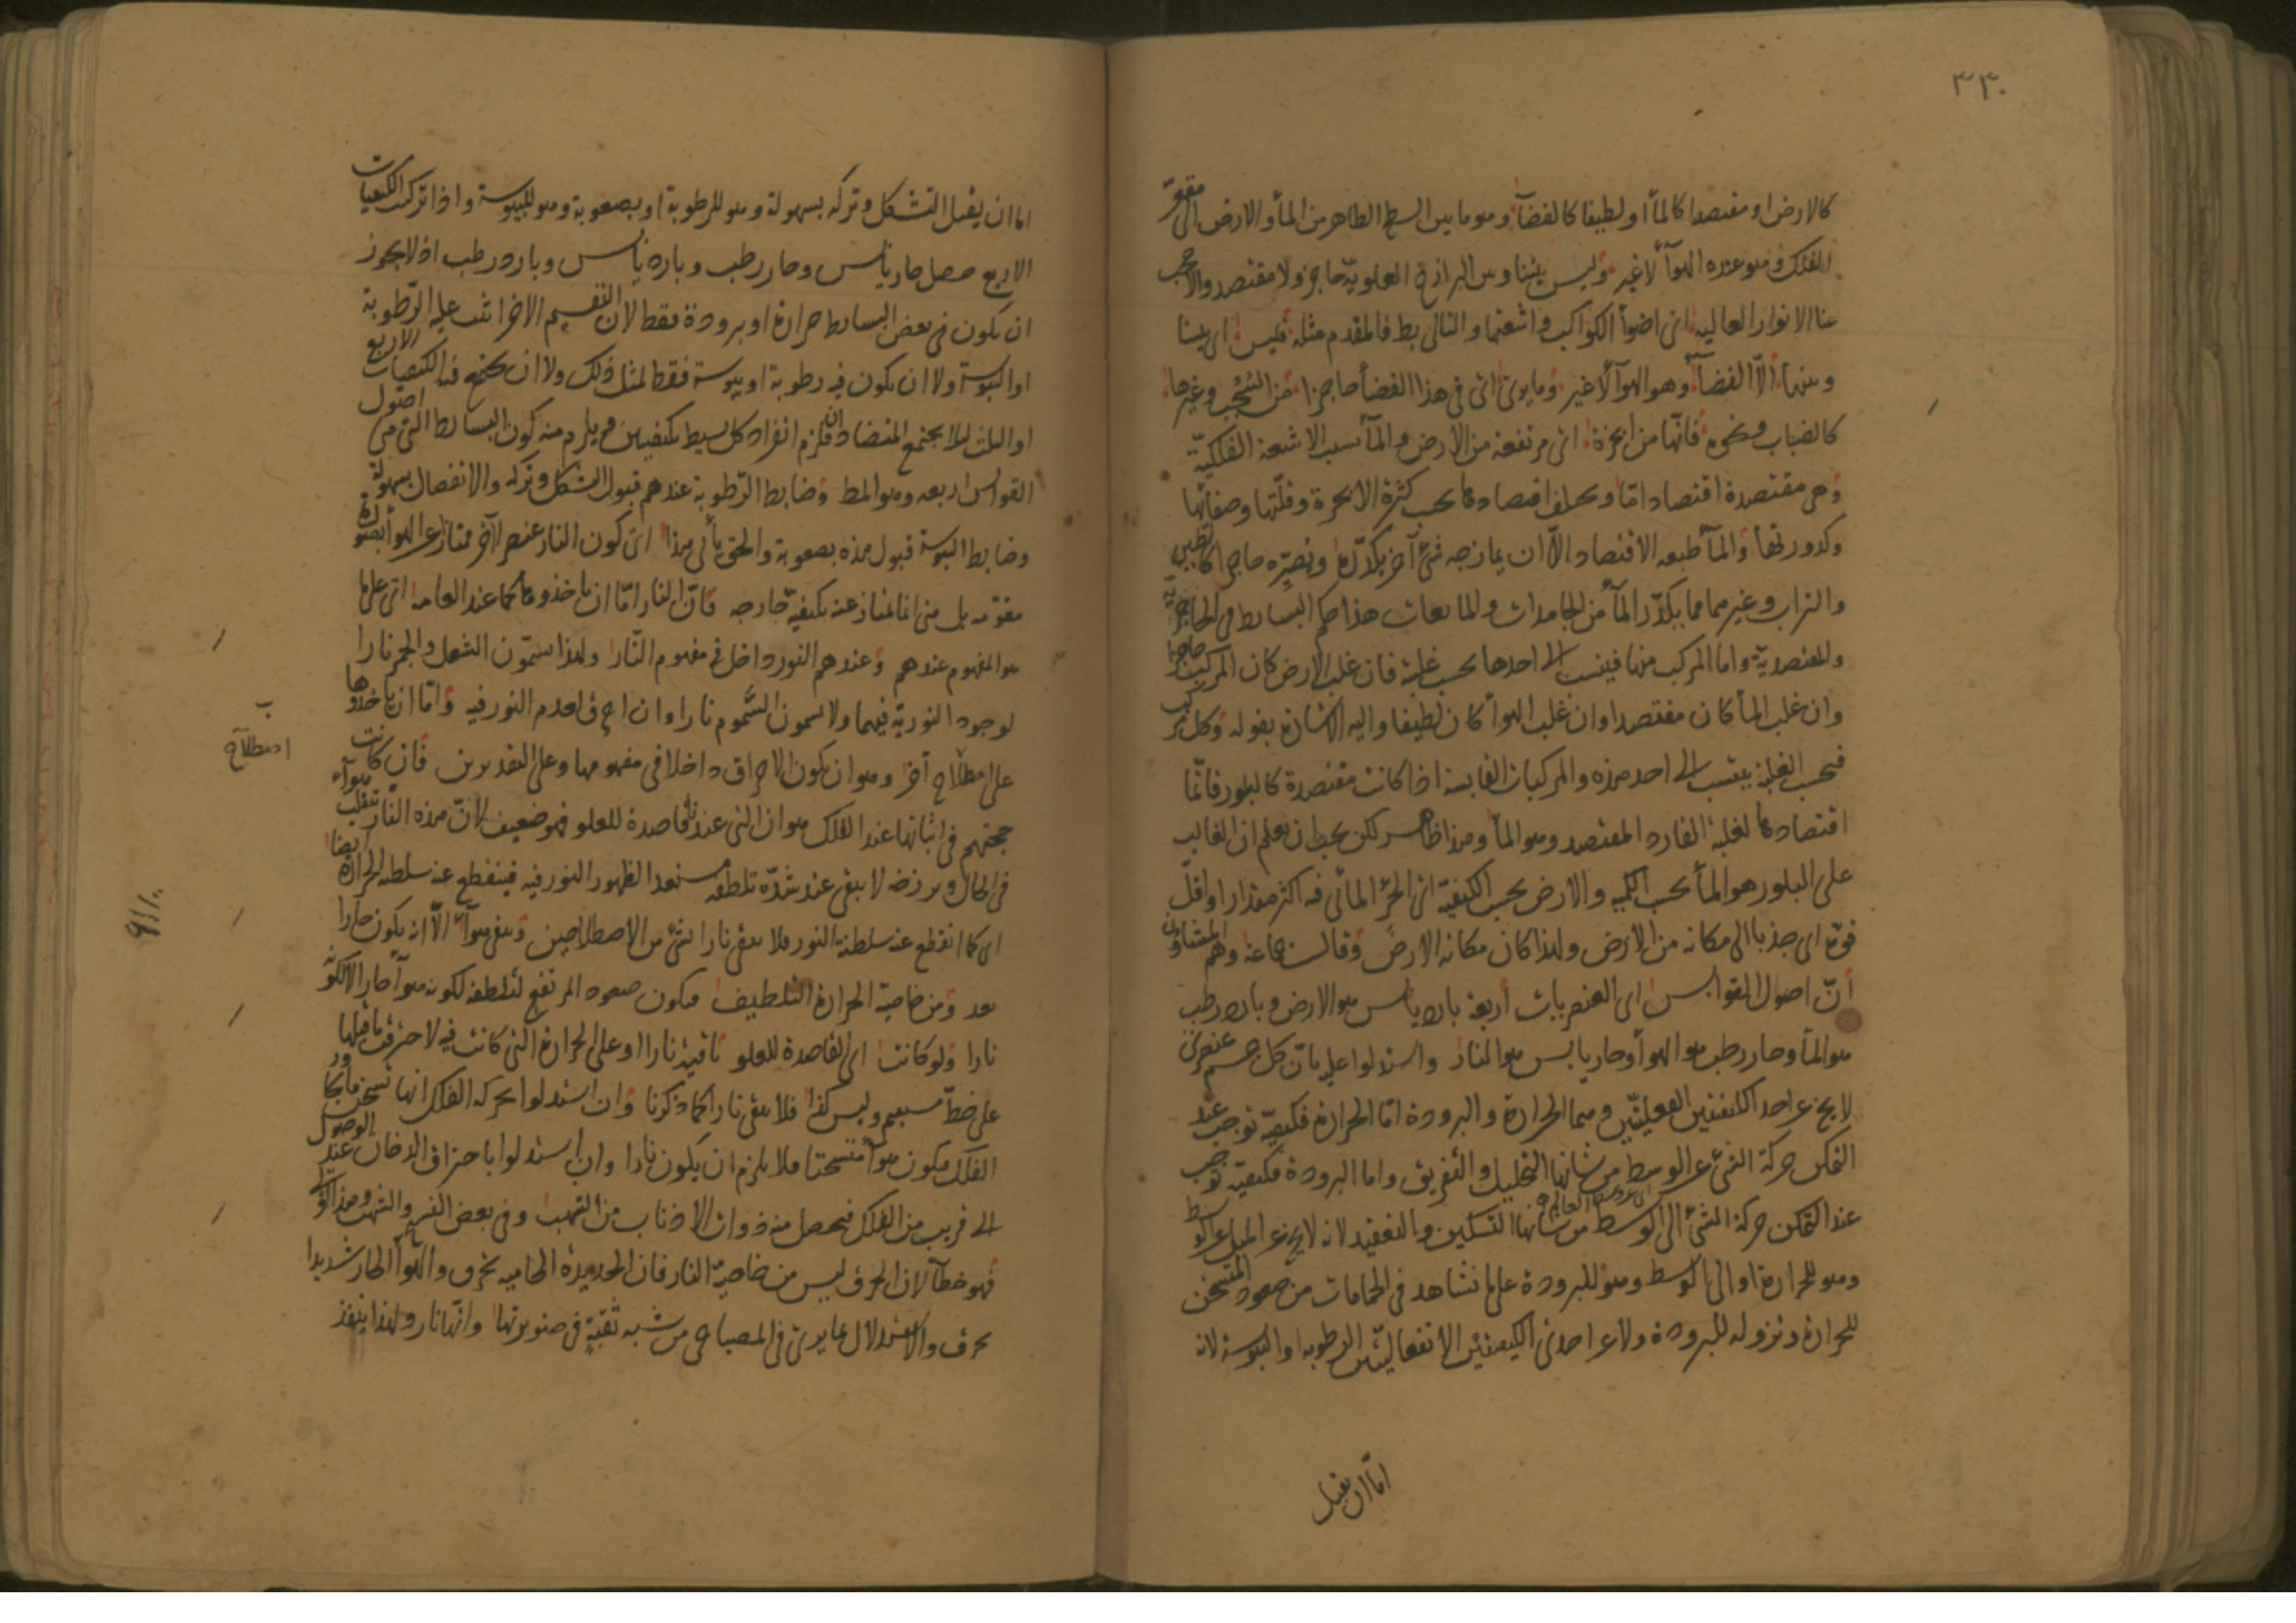 ٣٣٠
كالارض او مقتصدا كالمأ او لطيفا كالفضآ وهو ما بين السطح الظاهر من المأ والارض الى مقعر
الفلك وهو عنده الهوآ لا غير وليس بيننا وبين البرازخ العلوية حاجز ولا مقتصد والا حجب
عنا الانوار العاليه اى اضوأ الكواكب واشعتها والتالى بط فالمقدم مثله فليس اى بيننا
وبينها الّا الفضآ وهو الهوآ لا غير وما يرى اى فى هذا الفضأ حاجزا من السُّحُب وغيرها
كالضباب ونحوه فانّها من ابخرة اى مرتفعه من الارض والمآ بسبب الاشعة الفلكيّة
وهى مقتصدة اقتصادا تاما ويختلف اقتصادها بحسب كثرة الابخرة وقلّتها وصفائها
وكدورتها والمآ طبعه الاقتصاد الّا ان يمازجه شئ آخر يكدّره ويصيّره حاجزا كالطين
والتراب وغيرهما مما يكدّر المآ من الجامدات والمائعات هذا حكم البسائط فى الحاجزية
والمقتصدية واما المركب منها فينسب الى احدها بحسب غلبته فان غلب الارض كان المركب حاجزا
وان غلب المأ كان مقتصدا وان غلب الهوأ كان لطيفا واليه الاشارة بقوله وكل مركب
فبحسب الغلبة ينتسب الى احد هذه والمركبات القابسة اذا كانت مقتصدة كالبلور فانّما
اقتصادها لغلبة الفارد المقتصد وهو المأ وهذا ظاهر لكن يجب ان يعلم ان الغالب
على البلور هو المأ بحسب الكمية والارض بحسب الكيفية اى الجزء المائى فيه اكثر مقدارا واقلّ
قوة اى جذبا الى مكانه من الارض ولهذا كان مكانه الارض وقالت جماعة وهم المشاؤن
أنّ اصول القوابس اى العنصريات أربعة بارد يابس هو الارض وبارد رطب
هو المأ وحار رطب هو الهوأ وحار يابس هو النار واستدلوا عليه بانّ كل جسم عنصرى
لا يخ عن احد الكيفيتين الفعليتّين وهما الحرارة والبرودة امّا الحرارة فكيفيّة توجب عند
التمكن حركة الشئ عن الوسط من شانها التحليل والتفريق واما البرودة فكيفيّة توجب
اى عن وسط العالم
عند التمكن حركة الشئ الى الوسط من شانها التسكين والتعقيد لانه لا يخ عن الميل عن الوسط
وهو للحرارة او الى الوسط وهو للبرودة على ما نشاهد فى الحمامات من صعود المتسخن
للحرارة ونزوله للبرودة ولا عن احدى الكيفيتيْن الانفعاليتّين الرطوبه او اليبوسة لانه
امّا ان يقبل
اما ان يقبل التشكل وتركه بسهولة وهو للرطوبة او بصعوبة وهو لليبوسة واذا تركبت الكيفيات
الاربع حصل حار يابس وحار رطب وبارد يابس وبارد رطب اذ لا يجوز
ان يكون فى بعض البسائط حرارة او برودة فقط لان التقسيم الاخر اثبت عليه الرّطوبة
او اليبوسة ولا ان يكون فيه رطوبة او يبوسة فقط لمثل ذلك ولا ان يجتمع فيه الكيفيات الاربع
او الثلث لئلا يجتمع المتضادان فلزم انفراد كل بسيط بكيفيتين ويلزم منه كون البسائط التى هى اصول
القوابس اربعه وهو المط وضابط الرّطوبة عندهم قبول التشكل وتركه والانفصال بسهولة
وضابط اليبوسة قبول هذه بصعوبة والحق يأبى هذا اى كون النار عنصرا آخر ممتازا عن الهوأ بصورة
مقوّمه بل هى انما تمتاز عنه بكيفيّة خارجه فانّ النار امّا ان ياخذوها كما عند العامه اى على ما
هو المفهوم عندهم وعندهم النور داخل فى مفهوم النّار ولهذا يسمّون الشعل والجمر نارا
لوجود النورية فيهما ولا يسمون السَّموم نارا وان احرق لعدم النور فيه وامّا ان ياخذوها
على اصطلاح آخر وهو ان يكون الاحراق داخلا فى مفهومها وعلى التقديرين فان كانت
حجتهم فى اثباتها عند الفلك هو ان التى عندنا قاصدة للعلو فهو ضعيف لانّ هذه النار تنقلب هوآء
فى الحال وبرزخه لا يبقى عند شدّة تلطفه مستعدا لظهور النور فيه فينقطع عنه سلطنه الحرارة ايضا
اى كما انقطع عنه سلطنة النور فلا يبقى نارا بشئ من الاصطلاحين ويبقى هوآء الّا ان يكون حارا
بعد ومن خاصية الحرارة التلطيف فيكون صعود المرتفع لتلطفه لكونه هوآ حارا لا لكونه
نارا ولو كانت اى القاصدة للعلو باقية نارا او على الحرارة التى كانت فيه لاحترقت ما قبلها
على خطّ مستقيم وليس كذا فلا يبقى نارا كما ذكرنا وان استدلوا بحركة الفلك انها تسخن ما يجاور
الفلك فيكون هوآ متسخنا فلا يلزم ان يكون نارا وان استدلوا باحتراق الدخان عند الوصول
الى قريب من الفلك فيحصل منه ذوات الاذناب من الشهب وفى بعض النسخ والشهب وهذا
فهو خطأ لان الحرق ليس من خاصيّة النار فان الحديدة الحامية تحرق والهوأ الحار شديدا
يحرق والاستدلال بما يرى فى المصباح من شبه ثقبةٍ فى صنوبرتها وانّها نار ولهذا ينفذ
اصطلاح